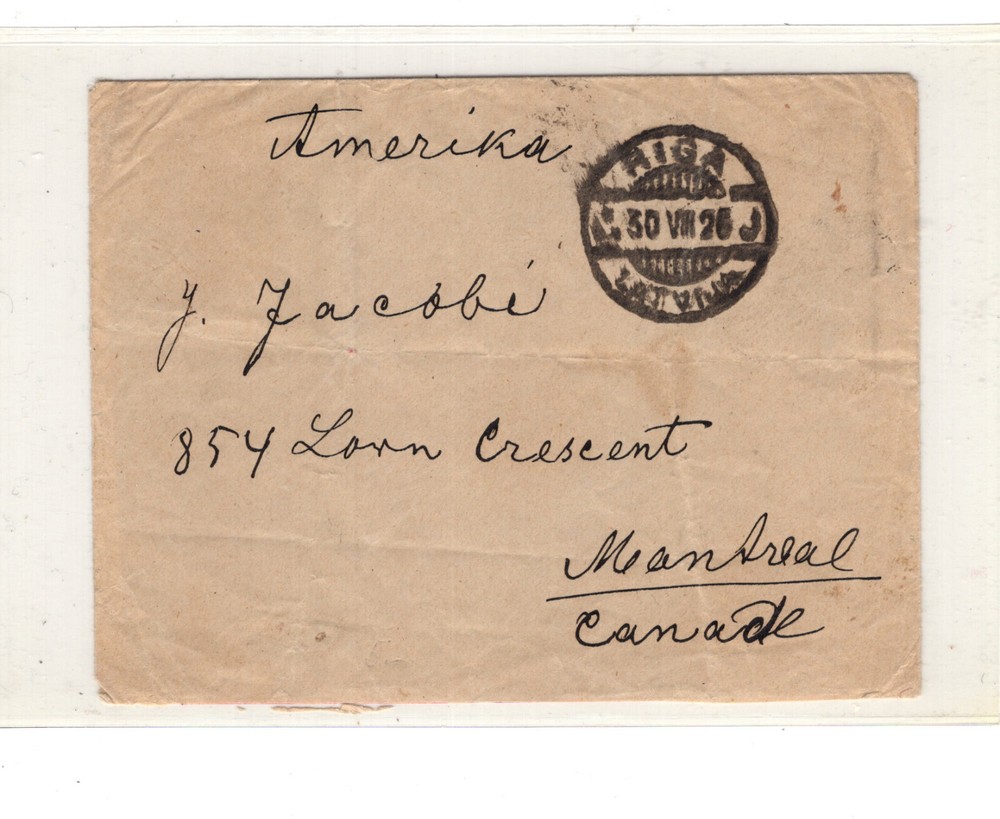 Amerika
RIGA
30 VIII 26 J
LATVIJA
J. Jacobi
854 Lorn Crescent
Mantreal
Canade